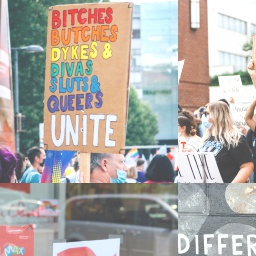 BITCHES
BUTCHES
DYKES &
DIVAS
SLUTS &
QUEERS
UNITE
LIVE
DIFFER
MAX